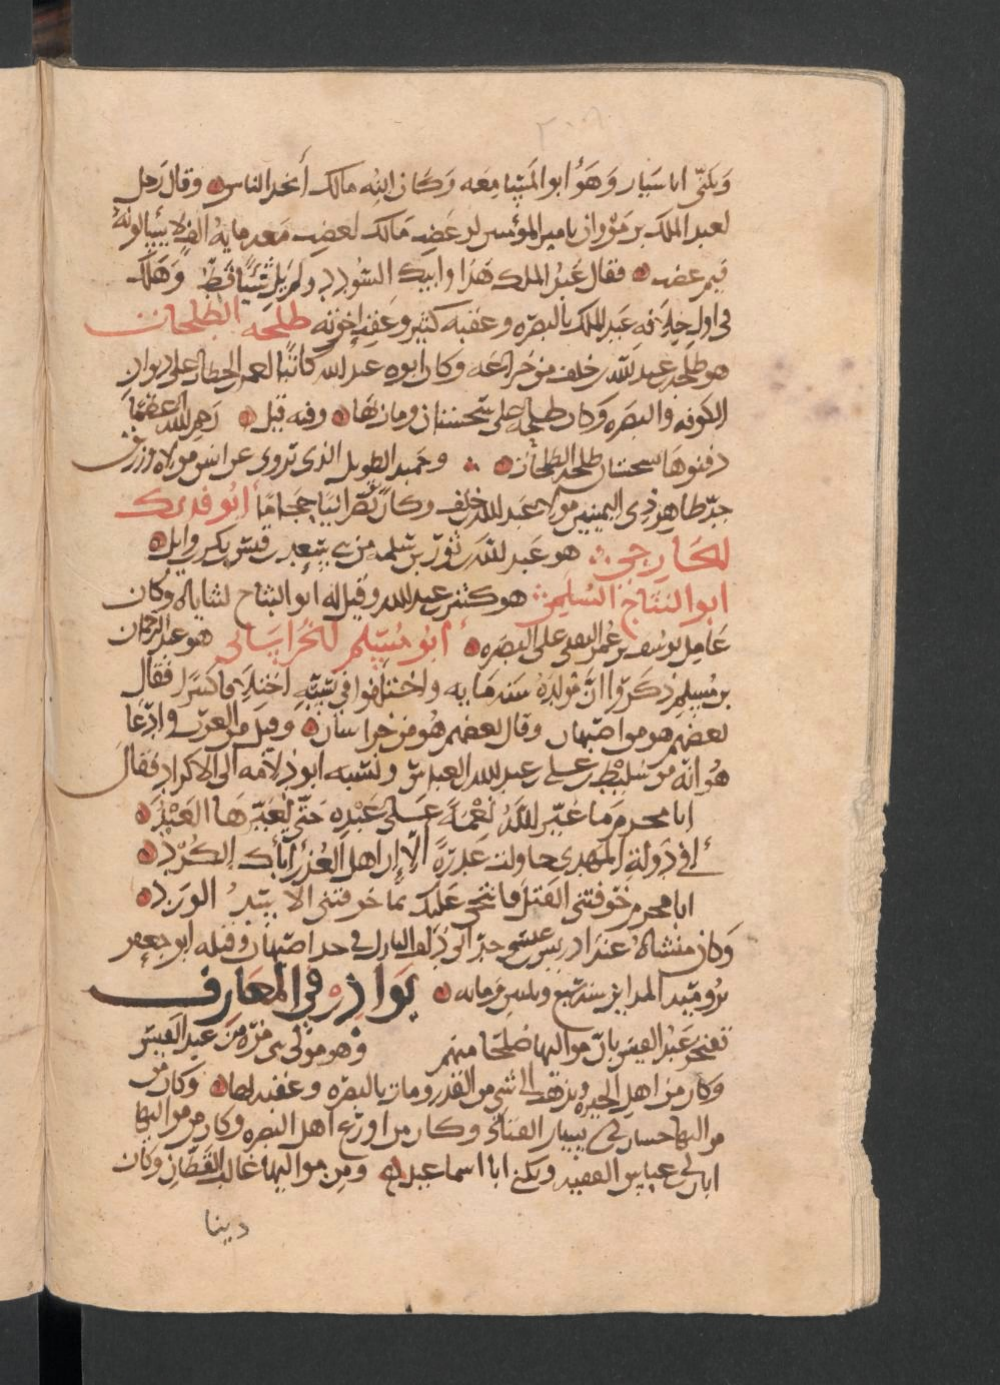 ويكنى ابا سيار وهو ابو المسامعه وكان ابنه مالك أنجد الناس وقال رجل
لعبد الملك بن مروان يا مير المؤمنين لو غضب مالك لغضب معه مايه الف لا يسالونه
فيم غضب فقال عبد الملك هذا وابيك السودد ولم يل شيئا قط وهلك
في اول خلافه عبد الملك بالبصره وعقبه كثير وعقب اخوته طلحه الطلحات
هو طلحه بن عبد الله بن خلف من خزاعه وكان ابوه عبد الله كاتبا لعمر بن الخطاب على ديوان
الكوفه والبصره وكان طلحه على سجستان ومات بها وفيه قيل رحم الله اعظما
دفنوها بسجستان طلحه الطلحات وحميد الطويل الذي يروى عن انس مولاه وزريق
جد طاهر ذي اليمينين مولى عبد الله بن خلف وكان نصرانيا حجاما ابو فديك
الخارجي هو عبد الله بن ثور بن سلمه من بني سعد بن قيس بكر بن وايل
ابو النتاج السلمي هو كثير بن عبد الله وقيل له ابو النتاج لثناياه وكان
عامل يوسف بن عمر الثقفي على البصره ابو مسلم الخراساني هو عبد الرحمان
بن مسلم ذكروا ان مولده سنه مايه واختلفوا في نسبه اختلافا كثيرا فقال
بعضهم هو من اصبهان وقال بعضهم هو من خراسان وقيل من العرب وادعا
هو انه من سليط بن علي بن عبد الله بن العباس ونسبه ابو دلامه الى الاكراد فقال
ابا مجرم ما غير الله نعمه على عبده حتى يغيرها العبد
أفي دولة المهدي حاولت غدره الا ان اهل الغدر آباك الكرد
ابا مجرم خوفتني القتل فانتحى عليك بما خوفتني الاسد الورد
وكان منشاه عند ادريس بن عيسى جد ابي دلف النازل في حد اصبهان وقتله ابو جعفر
برومية المداين سنه سبع وثلثين ومايه نوادر في المعارف
تفتخر عبد القيس بان مواليها صلحا منهم وهو مولى بني مره من عبد القيس
وكان من اهل الحيره وينزقد الى شي من القدر ومات بالبصره وعقبه بها وكان من
مواليها حسان بن ابي سنان العتاكي وكان من اورع اهل البصره وكان من مواليها
ابان بن ابي عباس الفقيه ويكنى ابا اسماعيل ومن مواليها غالب القطان وكان
دينا